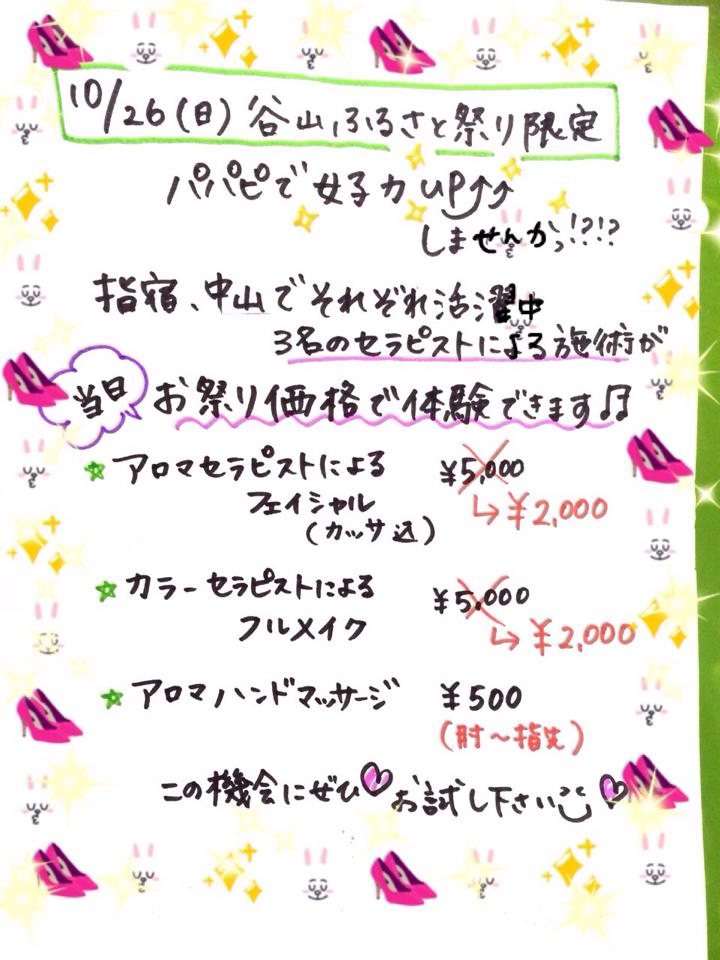 10/26(日) 谷山ふるさと祭り限定
パパピで女子力UP↑↑
しませんかっ!?!?
指宿、中山でそれぞれ活濯中
3名のセラピストによる施術が
当日 お祭り価格で体験できます♫
☆アロマセラピストによる ¥5,000
フェイシャル ↳¥2,000
(カッサ込)
☆カラーセラピストによる ¥5,000
フルメイク ↳¥2,000
☆アロマハンドマッサージ ¥500
(肘〜指先)
この機会にぜひ♡お試し下さい♡